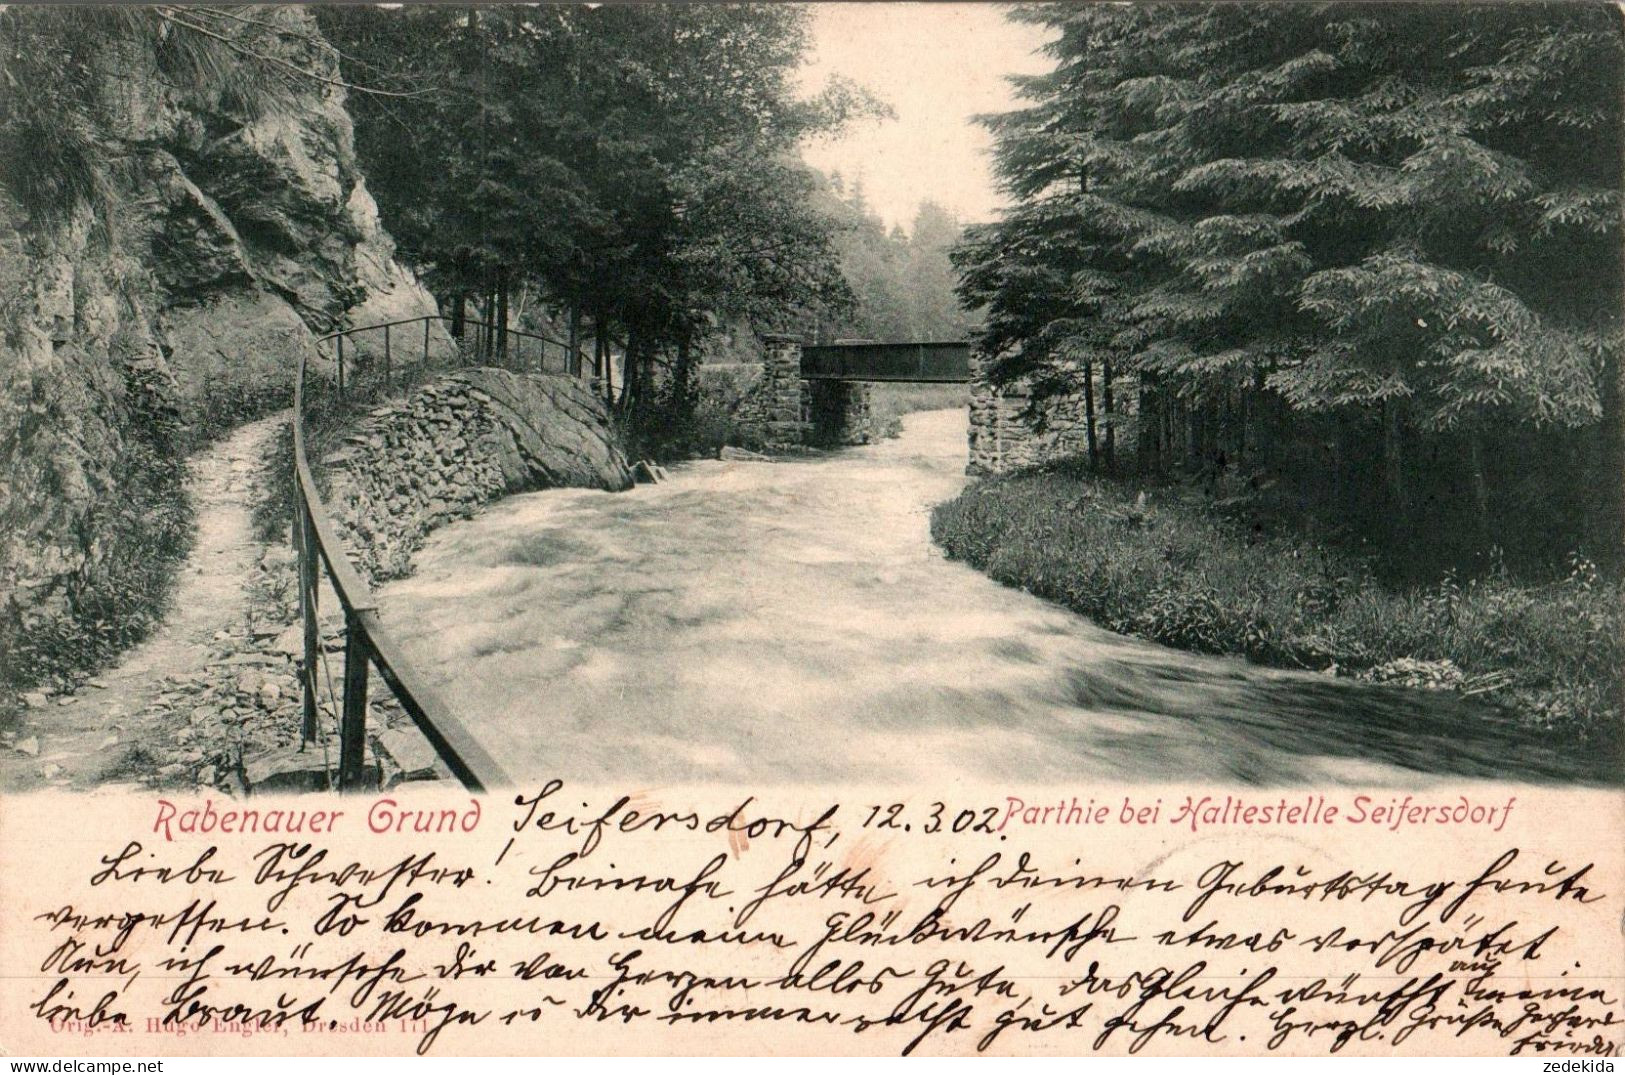 Rabenauer Grund
Seifersdorf, 12.3.02.
Parthie bei Haltestelle Seifersdorf
Liebe Schwester! Beinahe hätte ich deinen Geburtstag heute
vergessen. So kommen meine Glückwünsche etwas verspätet.
Nun, ich wünsche dir von Herzen alles Gute, dasgleiche wünscht auch meine
liebe Braut. Möge es dir immer recht gut gehen. Herzl. Grüße
Orig.-A. Hugo Engler, Dresden 171
zedekida